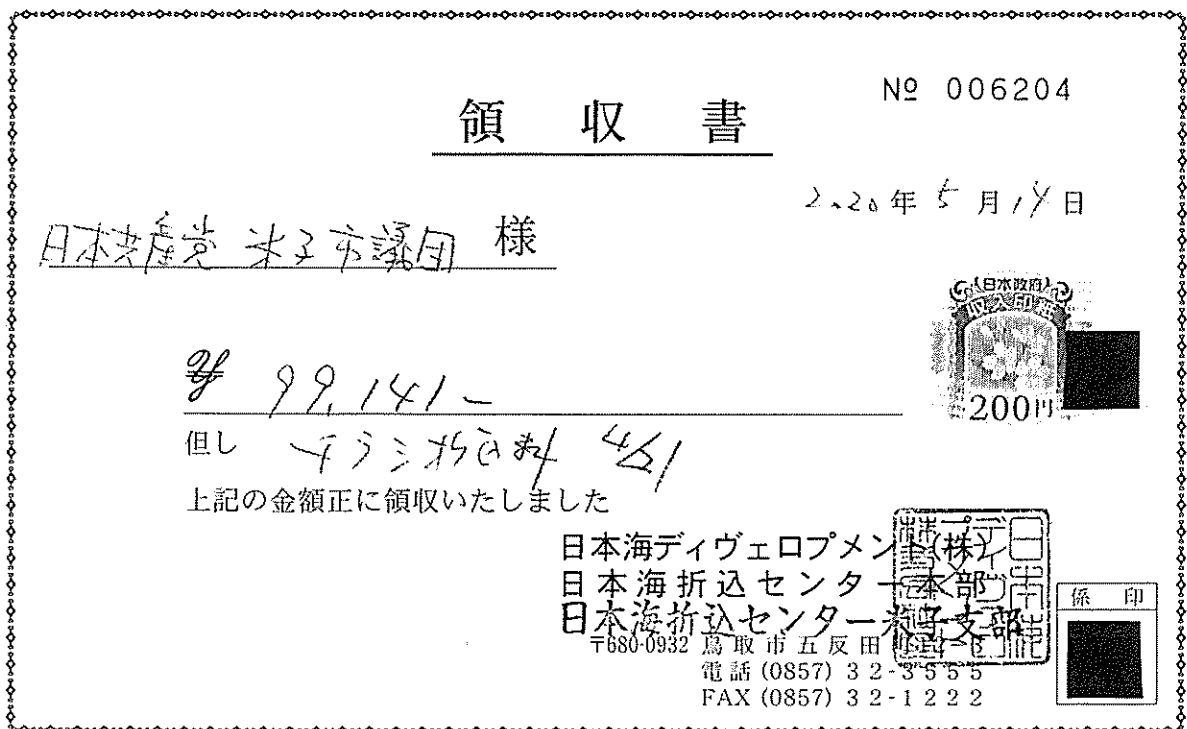 領収書
№ 006204
2020年5月14日
日本共産党 米子市議団 様
日本政府
収入印紙
200円
¥ 99,141-
但し チラシ折込料 4/21
上記の金額正に領収いたしました
日本海ディヴェロプメント(株)
日本海折込センター本部
日本海折込センター米子支部
〒680-0932 鳥取市五反田町
電話 (0857) 32-3555
FAX (0857) 32-1222
係印